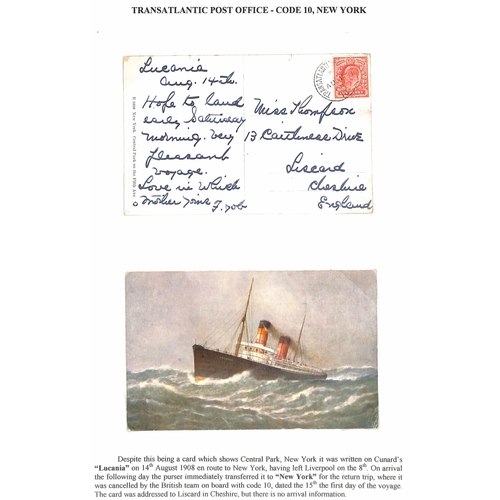 TRANSATLANTIC POST OFFICE - CODE 10, NEW YORK
Lucania
Aug. 14th.
Hope to land
early Saturday
morning. Very
pleasant
voyage.
Love in which
Mother joins
Miss Thompson
13 Caithness Drive
Liscard
Cheshire
England
New York, Central Park on the Fifth Ave
TRANSATLANTIC
Despite this being a card which shows Central Park, New York it was written on Cunard's
"Lucania" on 14th August 1908 en route to New York, having left Liverpool on the 8th. On arrival
the following day the purser immediately transferred it to "New York" for the return trip, where it
was cancelled by the British team on board with code 10, dated the 15th the first day of the voyage.
The card was addressed to Liscard in Cheshire, but there is no arrival information.